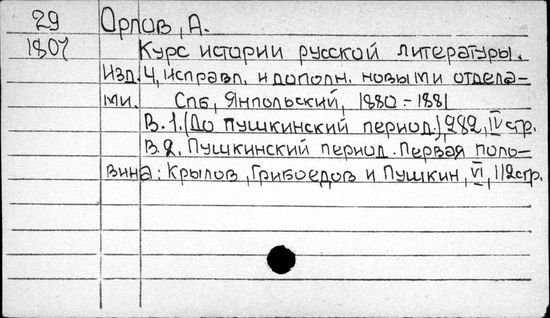 29 Орлов, А.
1807 Курс истории русской литературы.
Изд. 4, исправл. и дополн. новыми отдела-
ми. Спб, Янпольский, 1880-1881
В.1. (До пушкинский период.), 282, IV стр.
В.2. Пушкинский период. Первая поло-
вина: Крылов, Грибоедов и Пушкин, VI, 112 стр.